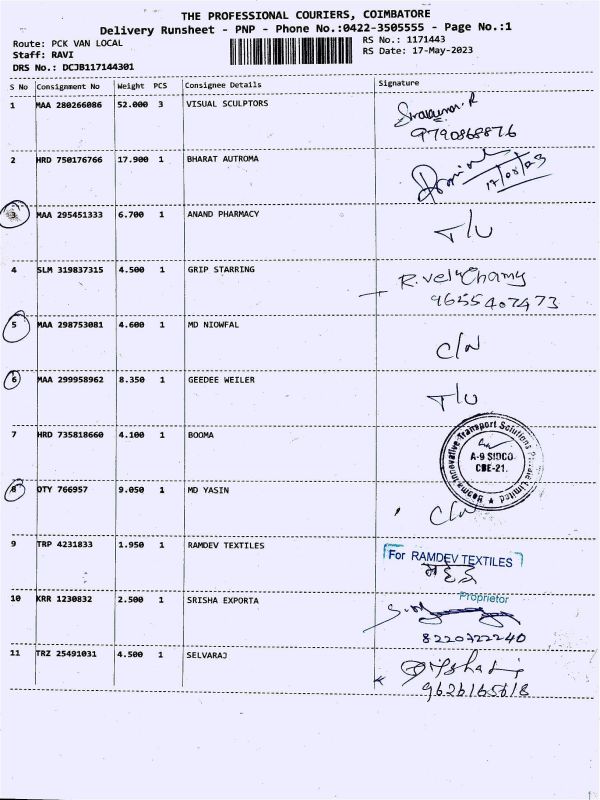 THE PROFESSIONAL COURIERS, COIMBATORE
Delivery Runsheet - PNP - Phone No.:0422-3505555 - Page No.:1
Route: PCK VAN LOCAL
Staff: RAVI
DRS No.: DCJB117144301
RS No.: 1171443
RS Date: 17-May-2023
S No Consignment No Weight PCS Consignee Details Signature
1 MAA 280266086 52.000 3 VISUAL SCULPTORS
9790868876
2 HRD 750176766 17.900 1 BHARAT AUTROMA
17/05/23
3 MAA 295451333 6.700 1 ANAND PHARMACY T/U
4 SLM 319837315 4.500 1 GRIP STARRING R. veluchamy
9655407473
5 MAA 298753081 4.600 1 MD NIOWFAL C/N
6 MAA 299958962 8.350 1 GEEDEE WEILER T/U
7 HRD 735818660 4.100 1 BOOMA
Booma Innovative Transport Solutions Private Limited
A-9 SIDCO
CBE-21.
8 OTY 766957 9.050 1 MD YASIN C/N
9 TRP 4231833 1.950 1 RAMDEV TEXTILES For RAMDEV TEXTILES
Proprietor
10 KRR 1230832 2.500 1 SRISHA EXPORTA
8220722240
11 TRZ 25491031 4.500 1 SELVARAJ
9626165618